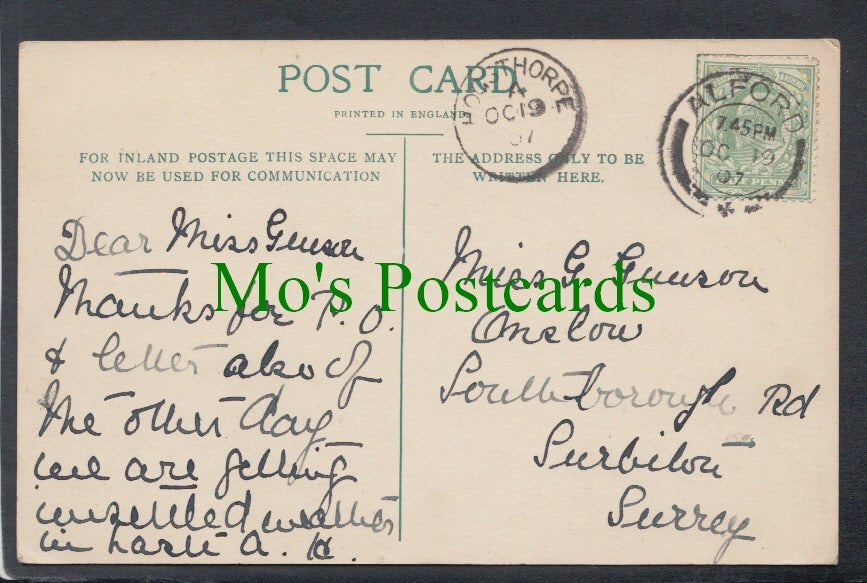 POST CARD.
PRINTED IN ENGLAND
FOR INLAND POSTAGE THIS SPACE MAY
NOW BE USED FOR COMMUNICATION
THE ADDRESS ONLY TO BE
WRITTEN HERE.
THORPE
A
OC 19
07
ALFORD
7.45 PM
OC 19
07
Dear Miss Gunson
Thanks for P.O.
& letter also of
the other day
we are getting
unsettled weather
in haste A. H.
Miss G. Gunson
Onslow
Southborough Rd
Surbiton
Surrey
Mo's Postcards